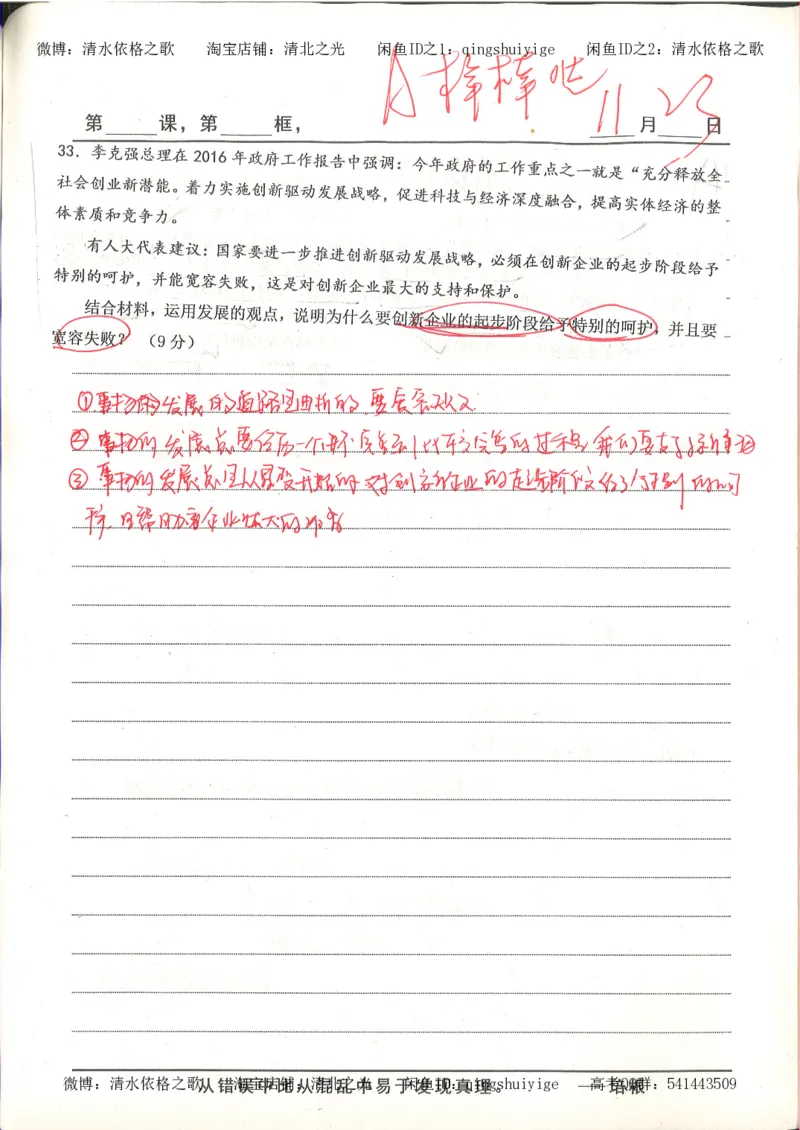 微博：清水依格之歌 淘宝店铺：清北之光 闲鱼ID之1：qingshuiyige 闲鱼ID之2：清水依格之歌
A 棒棒哒 11 23
第 课，第 框， 月 日
33．李克强总理在 2016 年政府工作报告中强调：今年政府的工作重点之一就是“充分释放全
社会创业新潜能。着力实施创新驱动发展战略，促进科技与经济深度融合，提高实体经济的整
体素质和竞争力。
有人大代表建议：国家要进一步推进创新驱动发展战略，必须在创新企业的起步阶段给予
特别的呵护，并能宽容失败，这是对创新企业最大的支持和保护。
结合材料，运用发展的观点，说明为什么要创新企业的起步阶段给予特别的呵护，并且要
宽容失败？（9 分）
①事物的发展的道路是曲折的，要宽容失败
②事物的发展总要经历一个由不完善到比较完善的过程，我们要支持新事物
③事物的发展总是从量变开始的 对创新企业的起步阶段给予特别的呵
护，是帮助企业壮大的
微博：清水依格之歌 淘宝店铺：清北之光 闲鱼ID：qingshuiyige 高考QQ群：541443509
从错误中比从混乱中易于发现真理。 ——培根